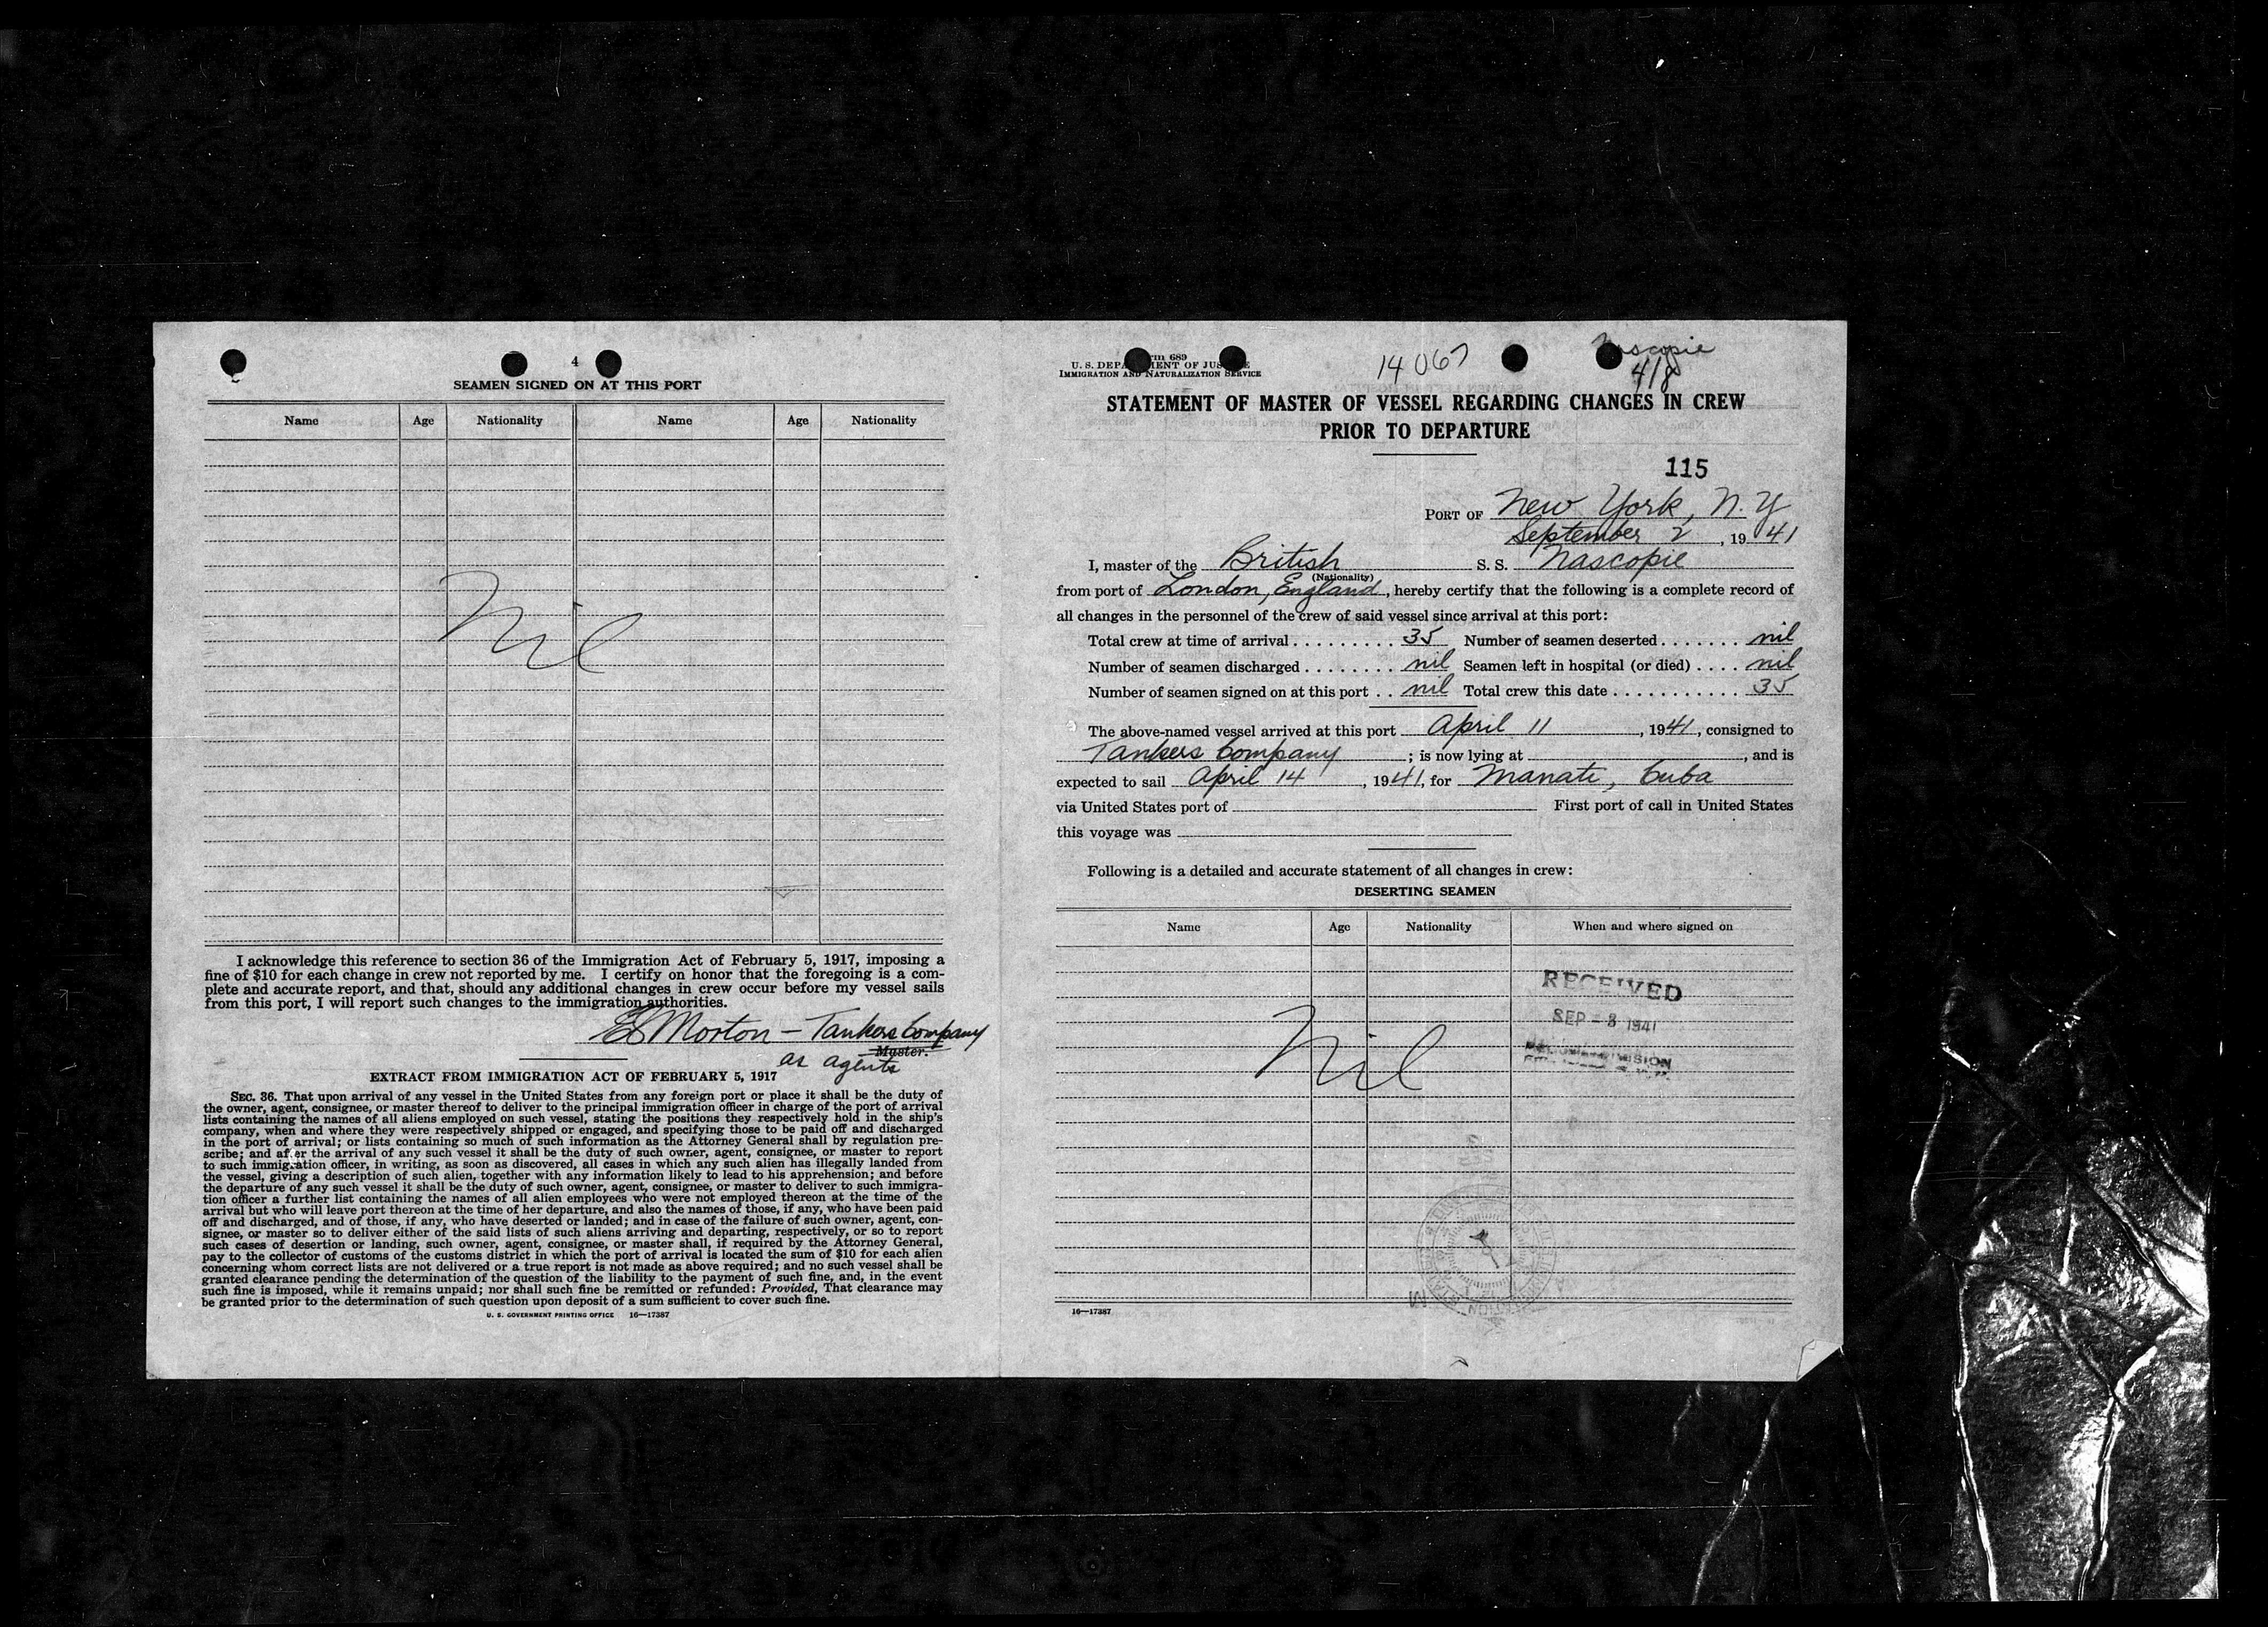 4
SEAMEN SIGNED ON AT THIS PORT
Name Age Nationality Name Age Nationality
Nil
I acknowledge this reference to section 36 of the Immigration Act of February 5, 1917, imposing a
fine of $10 for each change in crew not reported by me. I certify on honor that the foregoing is a com-
plete and accurate report, and that, should any additional changes in crew occur before my vessel sails
from this port, I will report such changes to the immigration authorities.
Morton - Tankers Company
Master.
as agents
EXTRACT FROM IMMIGRATION ACT OF FEBRUARY 5, 1917
SEC. 36. That upon arrival of any vessel in the United States from any foreign port or place it shall be the duty of
the owner, agent, consignee, or master thereof to deliver to the principal immigration officer in charge of the port of arrival
lists containing the names of all aliens employed on such vessel, stating the positions they respectively hold in the ship's
company, when and where they were respectively shipped or engaged, and specifying those to be paid off and discharged
in the port of arrival; or lists containing so much of such information as the Attorney General shall by regulation pre-
scribe; and after the arrival of any such vessel it shall be the duty of such owner, agent, consignee, or master to report
to such immigration officer, in writing, as soon as discovered, all cases in which any such alien has illegally landed from
the vessel, giving a description of such alien, together with any information likely to lead to his apprehension; and before
the departure of any such vessel it shall be the duty of such owner, agent, consignee, or master to deliver to such immigra-
tion officer a further list containing the names of all alien employees who were not employed thereon at the time of the
arrival but who will leave port thereon at the time of her departure, and also the names of those, if any, who have been paid
off and discharged, and of those, if any, who have deserted or landed; and in case of the failure of such owner, agent, con-
signee, or master so to deliver either of the said lists of such aliens arriving and departing, respectively, or so to report
such cases of desertion or landing, such owner, agent, consignee, or master shall, if required by the Attorney General,
pay to the collector of customs of the customs district in which the port of arrival is located the sum of $10 for each alien
concerning whom correct lists are not delivered or a true report is not made as above required; and no such vessel shall be
granted clearance pending the determination of the question of the liability to the payment of such fine, and, in the event
such fine is imposed, while it remains unpaid; nor shall such fine be remitted or refunded: Provided, That clearance may
be granted prior to the determination of such question upon deposit of a sum sufficient to cover such fine.
U. S. GOVERNMENT PRINTING OFFICE 16—17387
689
U. S. DEPARTMENT OF JUSTICE
IMMIGRATION AND NATURALIZATION SERVICE
14067
Nascopie
418
STATEMENT OF MASTER OF VESSEL REGARDING CHANGES IN CREW
PRIOR TO DEPARTURE
115
PORT OF New York, N.Y
September 2, 1941
I, master of the British S. S. Nascopie
(Nationality)
from port of London, England, hereby certify that the following is a complete record of
all changes in the personnel of the crew of said vessel since arrival at this port:
Total crew at time of arrival . . . . . . . . . 35 Number of seamen deserted . . . . . . . nil
Number of seamen discharged . . . . . . . . nil Seamen left in hospital (or died) . . . . nil
Number of seamen signed on at this port . . nil Total crew this date . . . . . . . . . . . 35
The above-named vessel arrived at this port April 11, 1941, consigned to
Tankers Company; is now lying at , and is
expected to sail April 14, 1941, for Manati, Cuba
via United States port of First port of call in United States
this voyage was
Following is a detailed and accurate statement of all changes in crew:
DESERTING SEAMEN
Name Age Nationality When and where signed on
RECEIVED
SEP - 8 1941
DIVISION
Nil
16—17387